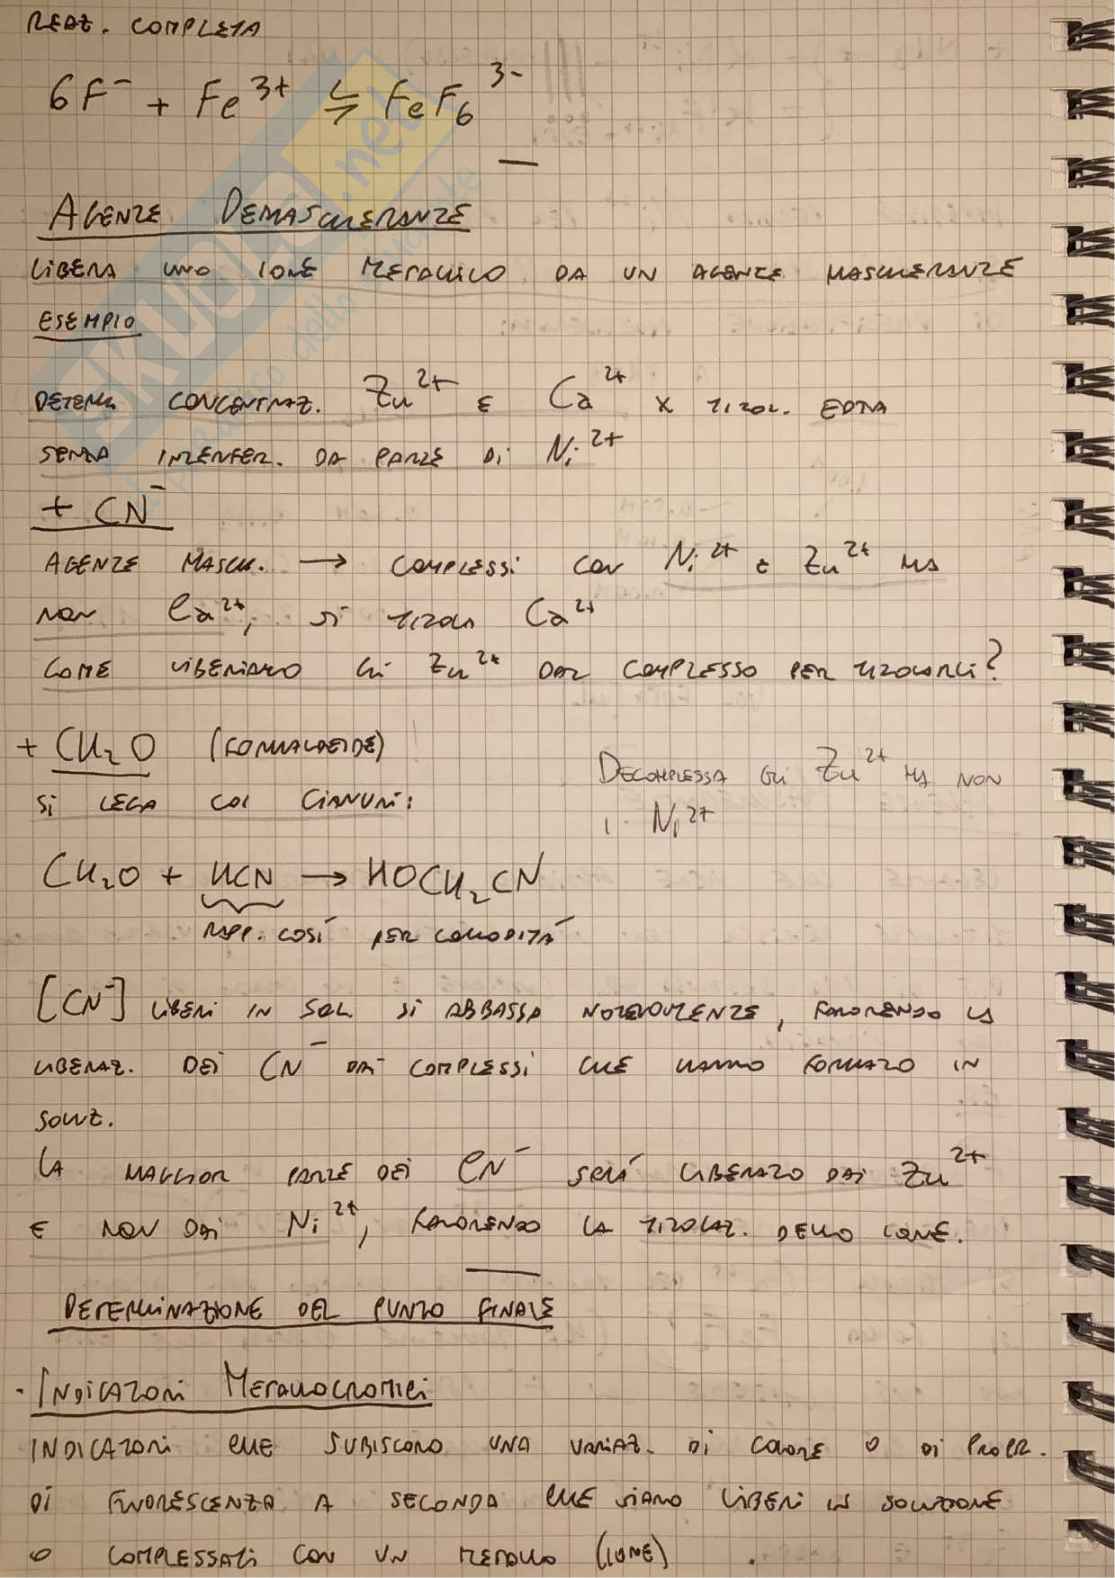 REAZ. COMPLETA
6F⁻ + Fe³⁺ ⇆ FeF₆³⁻
AGENTE DEMASCHERANTE
LIBERA UNO IONE METALLICO DA UN AGENTE MASCHERANTE
ESEMPIO
DETERM. CONCENTRAZ. Zn²⁺ E Ca²⁺ X TITOL. EDTA
SENZA INTERFER. DA PARTE DI Ni²⁺
+ CN⁻
AGENTE MASCH. → COMPLESSI CON Ni²⁺ E Zn²⁺ MA
NON Ca²⁺, SI TITOLA Ca²⁺
COME LIBERIAMO GLI Zn²⁺ DAL COMPLESSO PER TITOLARLI?
+ CH₂O (FORMALDEIDE)
SI LEGA COI CIANURI:
DECOMPLESSA GLI Zn²⁺ MA NON
I Ni²⁺
CH₂O + HCN → HOCH₂CN
RAPP. COSÍ PER COMODITÁ
[CN⁻] LIBERI IN SOL. SI ABBASSA NOTEVOLMENTE, FAVORENDO LA
LIBERAZ. DEI CN⁻ DAI COMPLESSI CHE HANNO FORMATO IN
SOLUZ.
LA MAGGIOR PARTE DEI CN⁻ SARÁ LIBERATO DAI Zn²⁺
E NON DAI Ni²⁺, FAVORENDO LA TITOLAZ. DELLO IONE.
DETERMINAZIONE DEL PUNTO FINALE
· INDICATORI METALLOCROMICI
INDICATORI CHE SUBISCONO UNA VARIAZ. DI COLORE O DI PROPR.
DI FLUORESCENZA A SECONDA CHE SIANO LIBERI IN SOLUZIONE
O COMPLESSATI CON UN METALLO (IONE)
SKUOLA.net